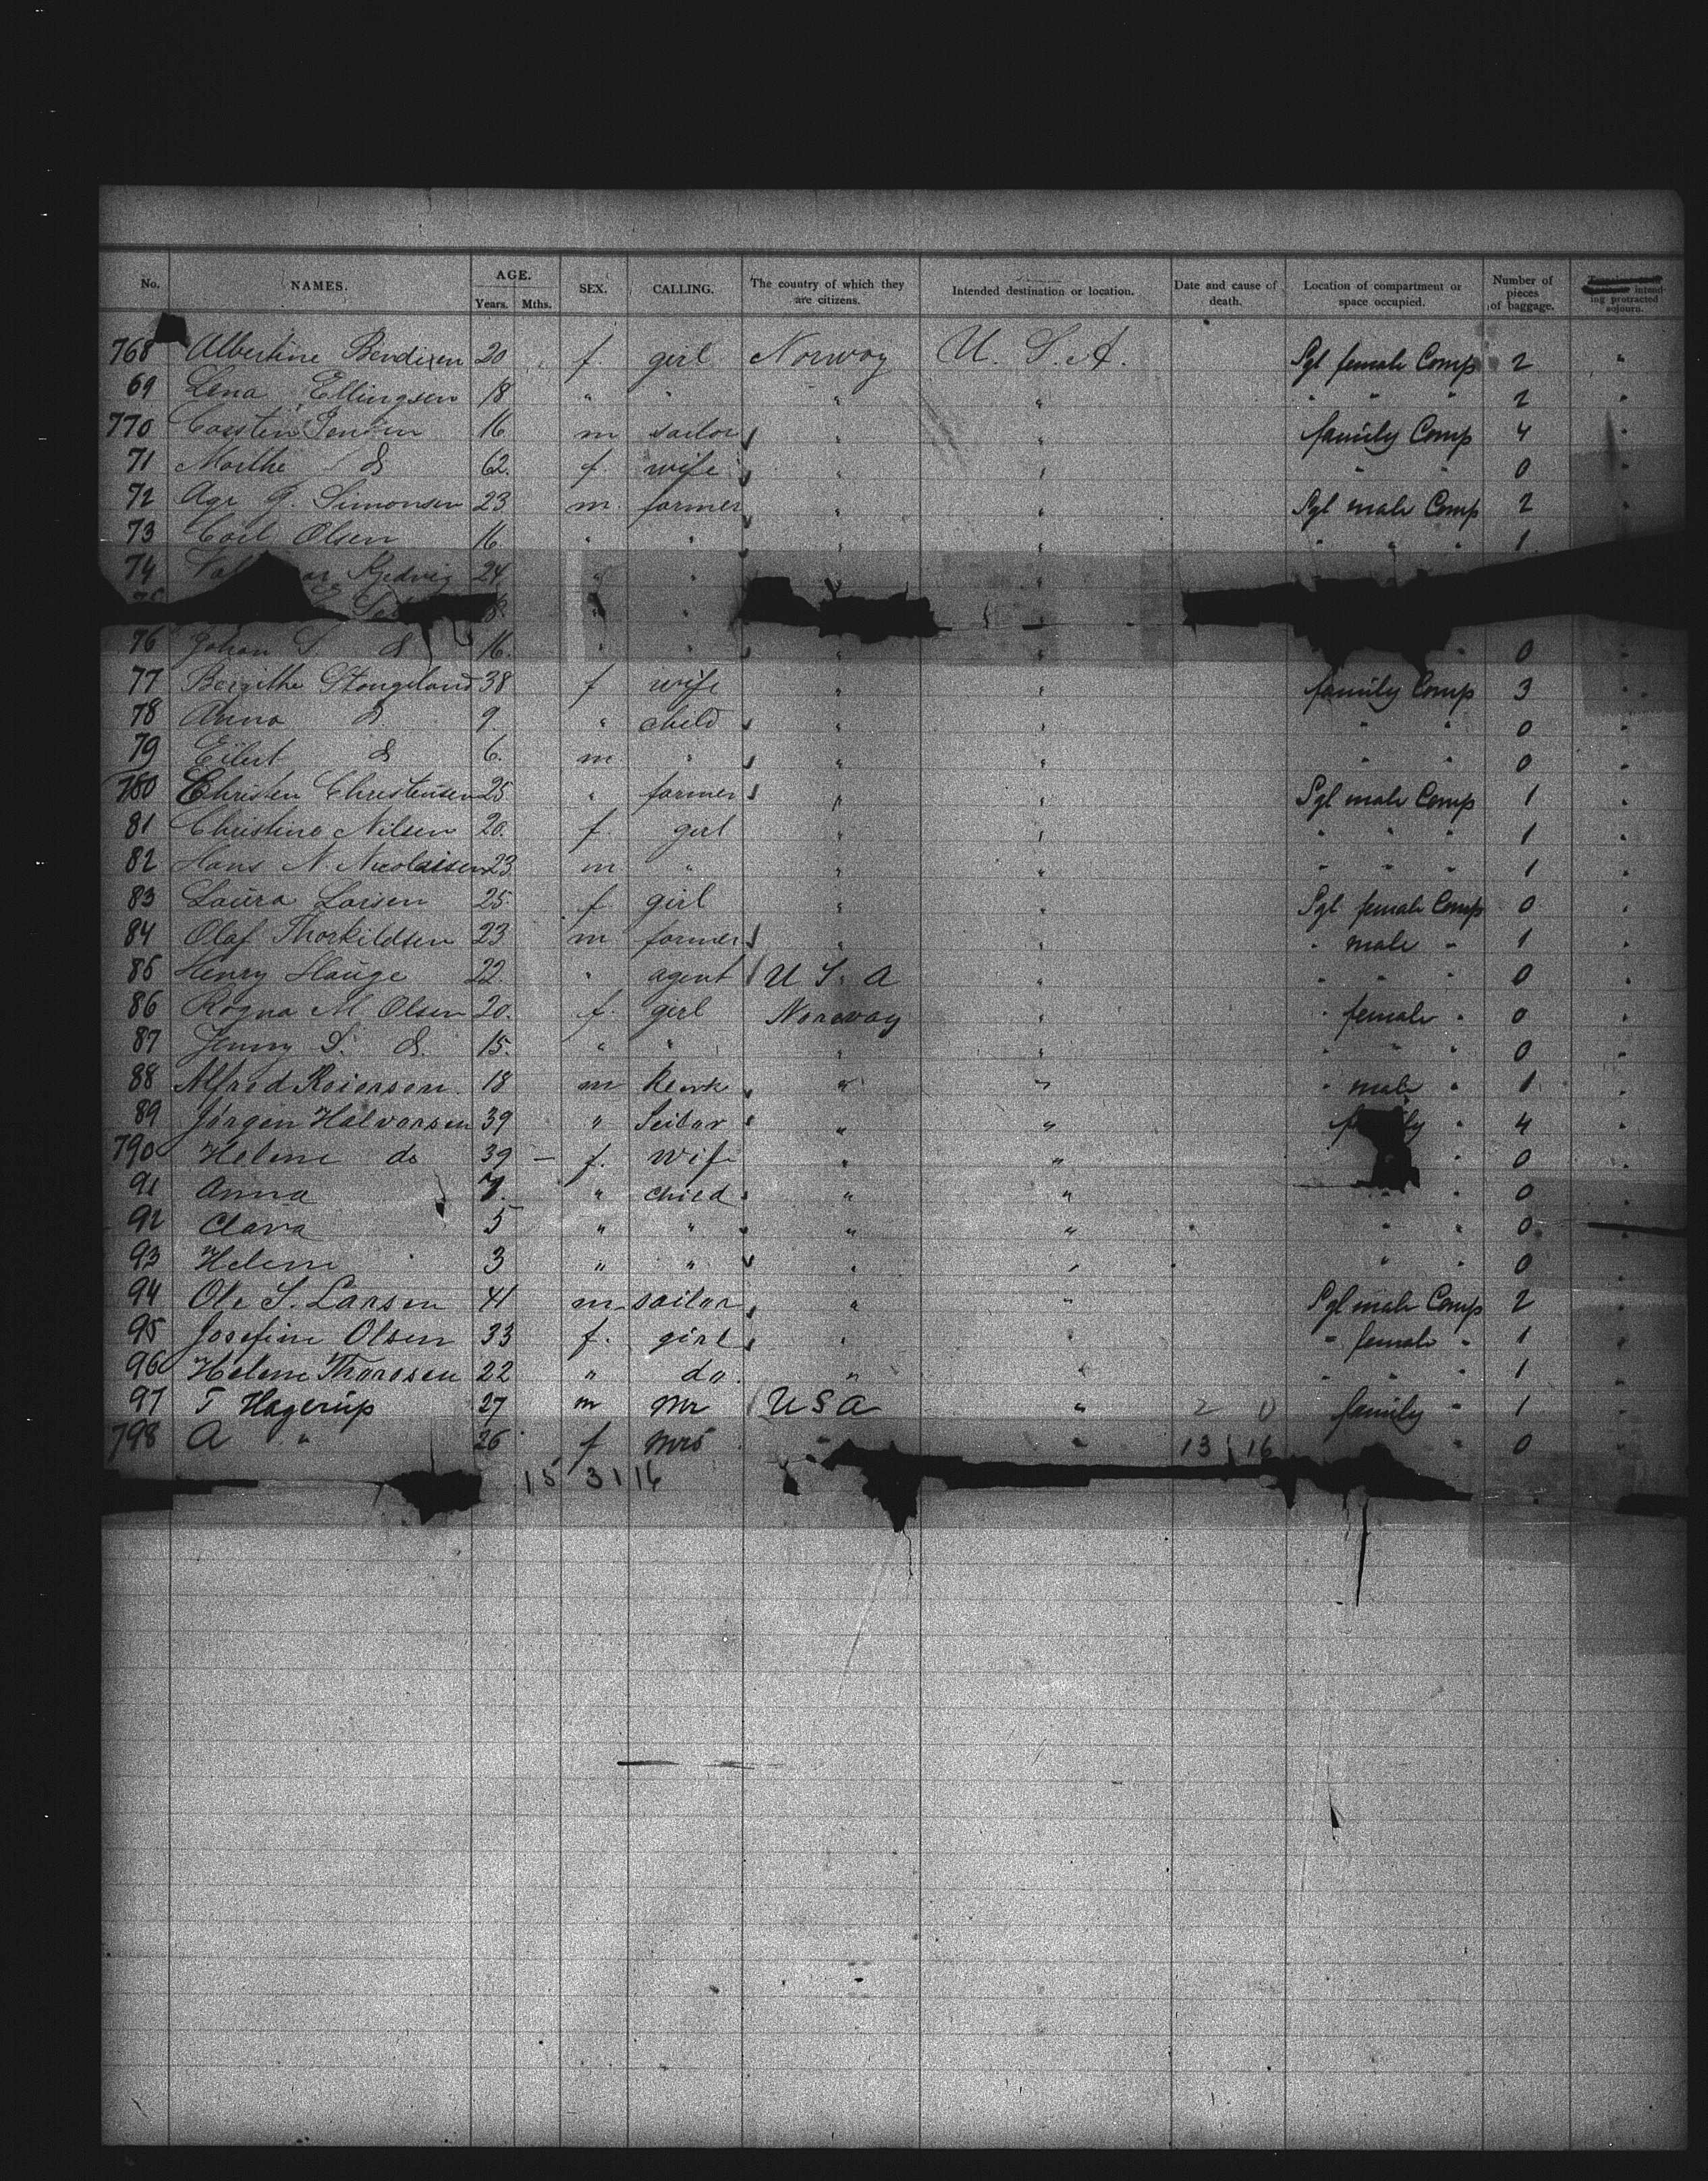 No. NAMES. AGE. Years. Mths. SEX. CALLING. The country of which they are citizens. Intended destination or location. Date and cause of death. Location of compartment or space occupied. Number of pieces of baggage. intending protracted sojourn.
768 Albertine Bendixen 20 f. girl Norway U. S. A. Sgl female Comp 2 "
69 Lena Ellingsen 18 " " " " " " " 2 "
770 Carsten Jensen 16 m sailor " " family Comp 4 "
71 Marthe d 62. f. wife " " " " 0 "
72 Age J. Simonsen 23 m. farmer " " Sgl male Comp 2 "
73 Carl Olsen 16. " " " " " " " 1
74 Kjedvig 24 " "
76 Johan S d 16. " " " " " 0 "
77 Bergithe Stangeland 38 f wife " " family Comp 3 "
78 Anna d 9 " child " " " " 0 "
79 Eilert d 6. m " " " " " 0 "
780 Christen Christensen 25 " farmer " " Sgl male Comp 1 "
81 Christine Nilsen 20. f. girl " " " " " 1 "
82 Hans N. Nicolaisen 23 m " " " " " " 1 "
83 Laura Larsen 25. f. girl " " Sgl female Comp 0 "
84 Olaf Thorkildsen 23 m farmer " " " male " 1 "
85 Henry Hauge 22. " agent U S. A " " " " 0 "
86 Ragna M. Olsen 20. f. girl Norway " " female " 0 "
87 Jenny S. d. 15. " " " " " " " 0 "
88 Alfred Reiersen. 18 m " " " male " 1 "
89 Jörgen Halvorsen 39 " " " " 4 "
790 Helene do 39 — f. wife " " " 0 "
91 Anna 7. " child " " " 0 "
92 Clara 5 " " " " " " 0 "
93 Helene 3 " " " " " " 0 "
94 Ole S. Larsen 41 m sailor " " Sgl male Comp 2 "
95 Josefine Olsen 33 f. girl " " " female " 1 "
96 Helene Thoresen 22 " do. " " " " " 1 "
97 T Hagerup 27 m Mr U S A " 2 0 family " 1 "
798 A " 26 f Mrs " " 13 16 " 0 "
15 31 16